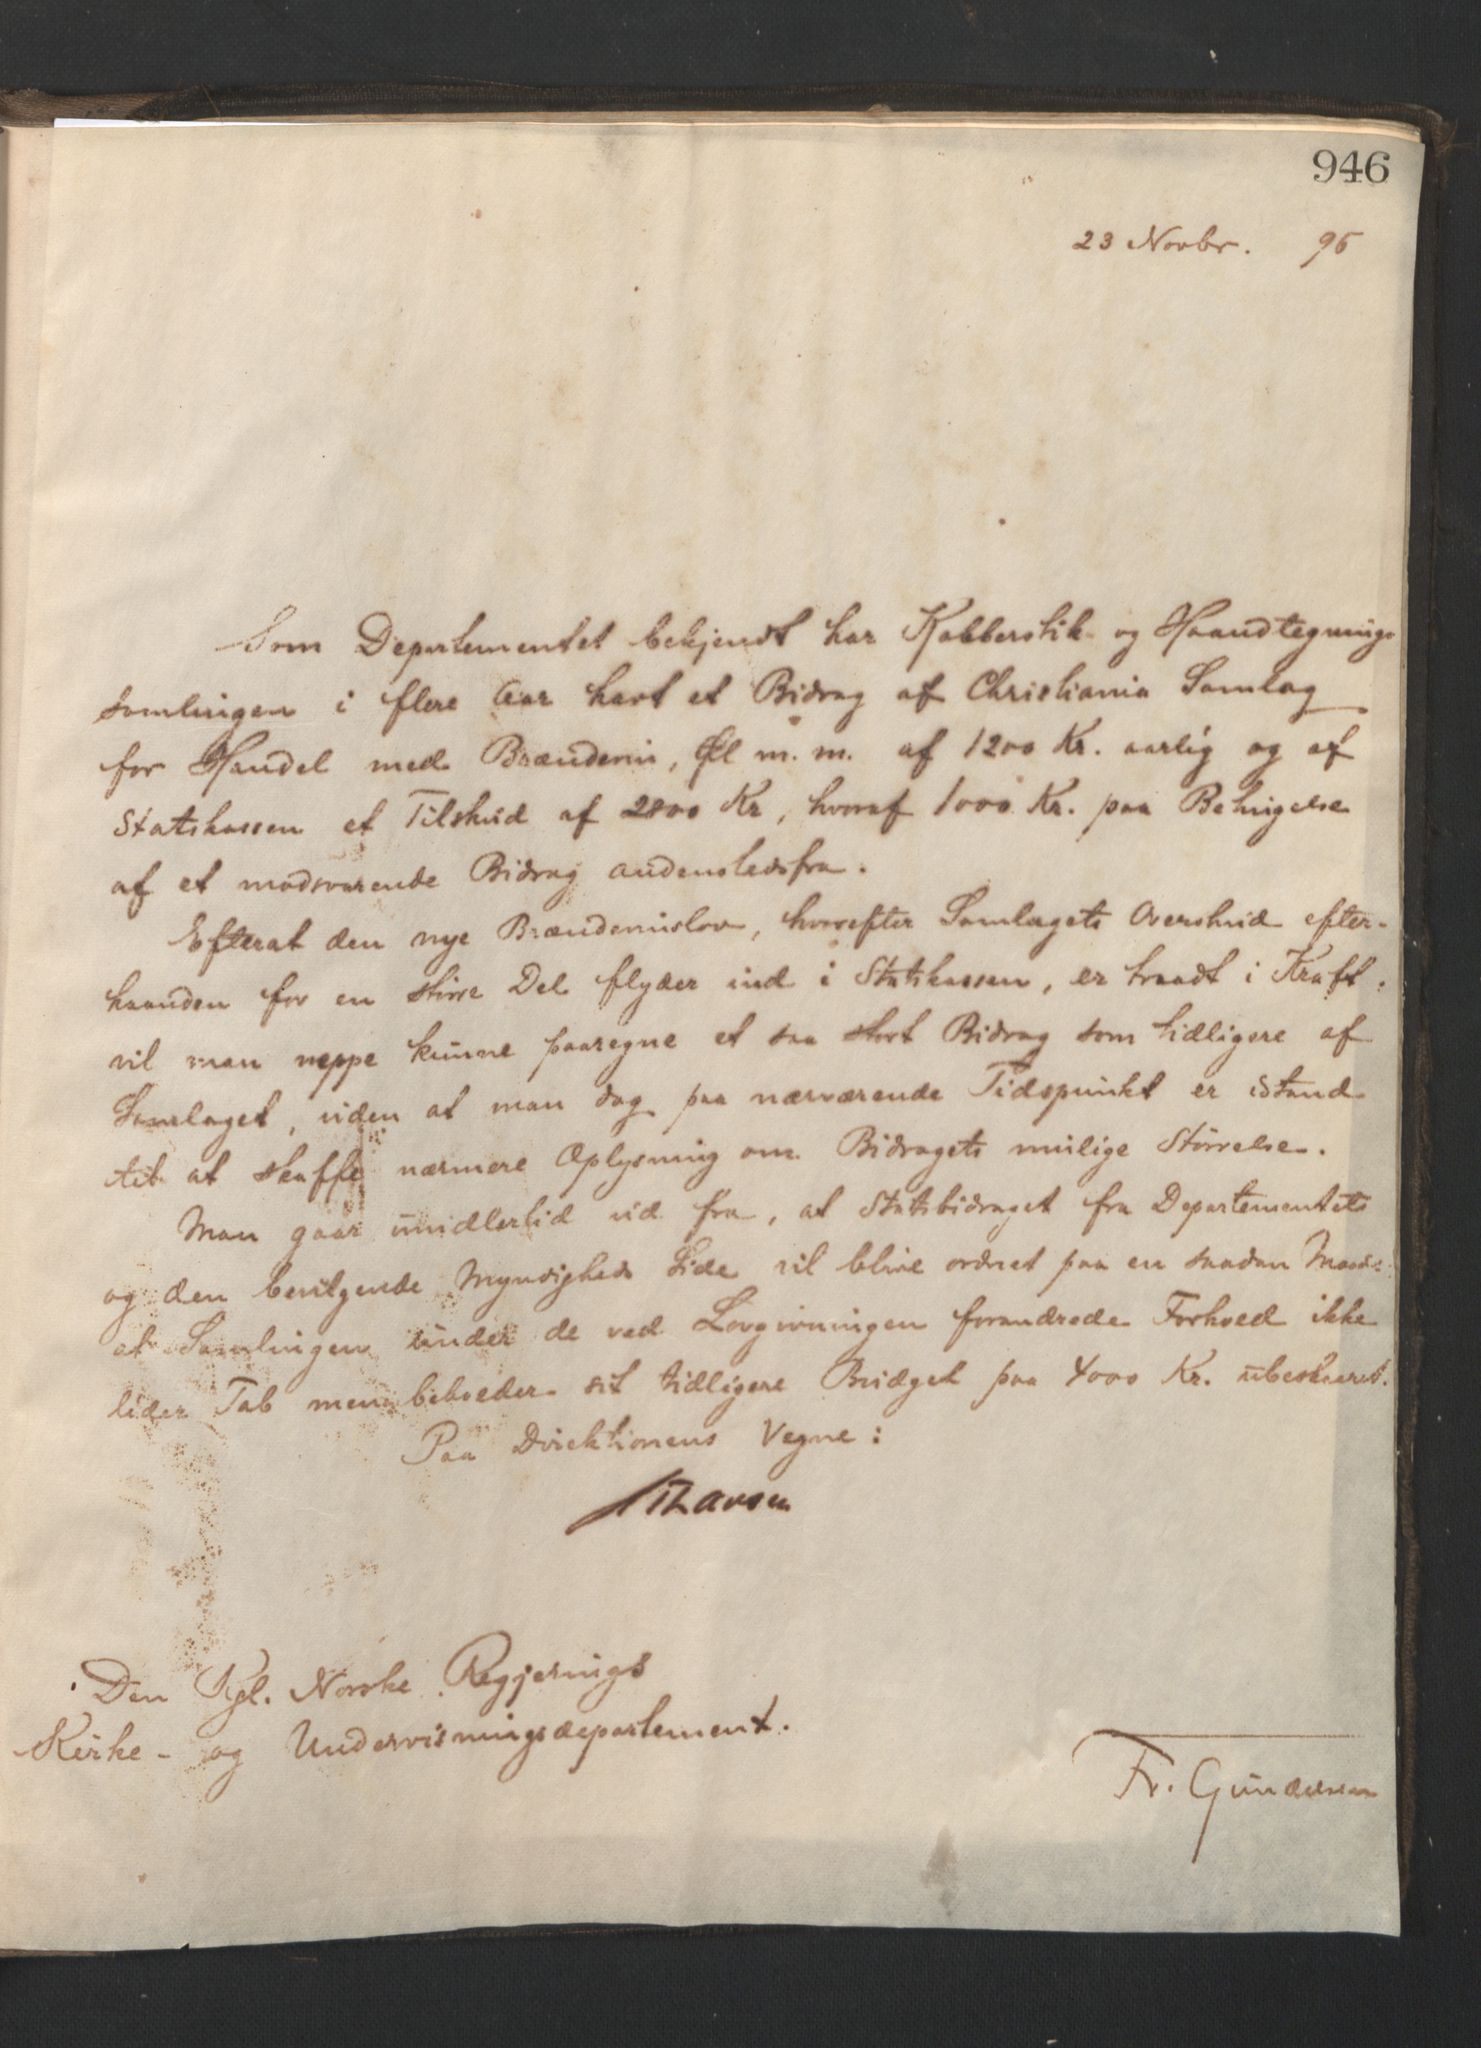 946
23 Novbr. 96
Som Departementet bekjendt har Kobberstik- og Haandtegnings-
samlingen i flere Aar havt et Bidrag af Christiania Samlag
for Handel med Brændevin, Øl m. m. af 1200 Kr. aarlig og af
Statskassen et Tilskud af 2800 Kr, hvoraf 1000 Kr. paa Betingelse
af et modsvarende Bidrag andenstedsfra.
Efterat den nye Brændevinslov, hvorefter Samlagets Overskud efter-
haanden for en større Del flyder ind i Statskassen, er traadt i Kraft,
vil man neppe kunne paaregne et saa stort Bidrag som tidligere af
Samlaget, uden at man dog paa nærværende Tidspunkt er istand
til at skaffe nærmere Oplysning om Bidragets mulige Størrelse.
Man gaar imidlertid ud fra, at Statsbidraget fra Departementets
og den bevilgende Myndigheds Side vil blive ordnet paa en saadan Maade
at Samlingen under de ved Lovgivningen forandrede Forhold ikke
lider Tab men beholder sit tidligere Budget paa 4000 Kr. ubeskaaret.
Paa Direktionens Vegne:
Larsen
Den Kgl. Norske Regjerings
Kirke- og Undervisningsdepartement.
Fr. Gundersen